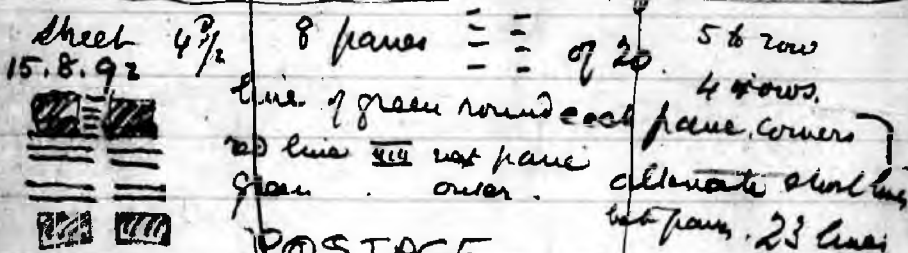 Sheet 4½ 8 panes of 20. 5 to row
15.8.92 4 rows.
line of green round each pane. corners
red line next pane
green . outer . alternate short lines
bet panes. 23 lines
POSTAGE